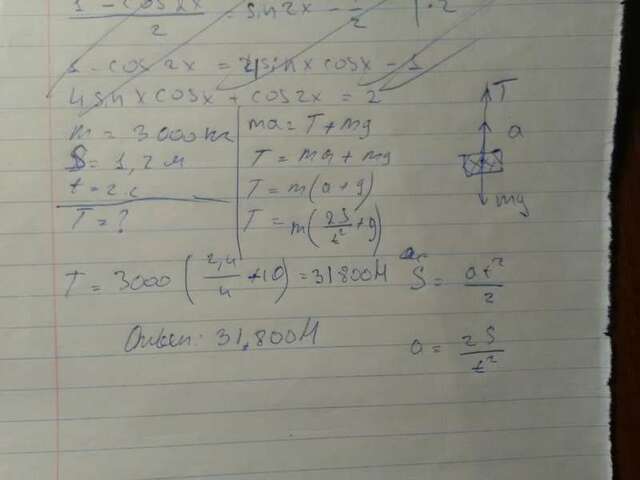 1 - cos2x / 2 = sin2x - 1/2 | · 2
1 - cos2x = 4sinxcosx - 1
4sinxcosx + cos2x = 2
m = 3000кг
S = 1,2 м
t = 2 c
T = ?
ma = T + mg
T = ma + mg
T = m(a + g)
T = m(2S/t² + g)
T
a
mg
T = 3000 (2,4/4 + 10) = 31800Н
S = at²/2
Ответ: 31,800Н
a = 2S/t²